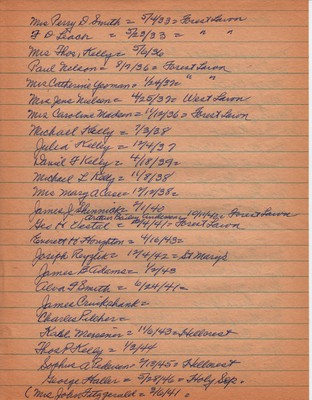 Mrs Perry D Smith = 5/4/33 = Forest Lawn
F D Leach = 5/29/33 = " "
Mrs Thos, Kelly = 5/6/36
Paul Nelson = 8/7/36 = Forest Lawn
Mrs Catherine Yeoman = 1/24/37 = " "
Mrs Jens Nielsen = 4/25/37 = West Lawn
Mrs Caroline Madsen = 11/10/36 = Forest Lawn
Michael Kelly = 7/3/38
Julia Kelly = 10/4/37
David F Kelly = 4/18/39 =
Michael L Kelly = 11/8/38
Mrs Mary A Cress = 12/12/38 =
James J. = 2/11/40
Anderson 10/11/42 = Forest Lawn
Geo H Oestel = 12/4/41 = Forest Lawn
Everett M Houghton = 4/10/43 =
Joseph = 12/4/42 = St Marys
James S Adams = 1/2/43
Alva F Smith = 6/24/41 =
James Cruikshank =
Charles Pilcher =
Messner = 11/6/43 = Hillcrest
Thos P Kelly = 1/2/44
Sophus A Pedersen = 2/12/45 = Hillcrest
George Haller = 5/28/46 = Holy Sep.
(Mrs John Fitzgerald = 3/6/41 =